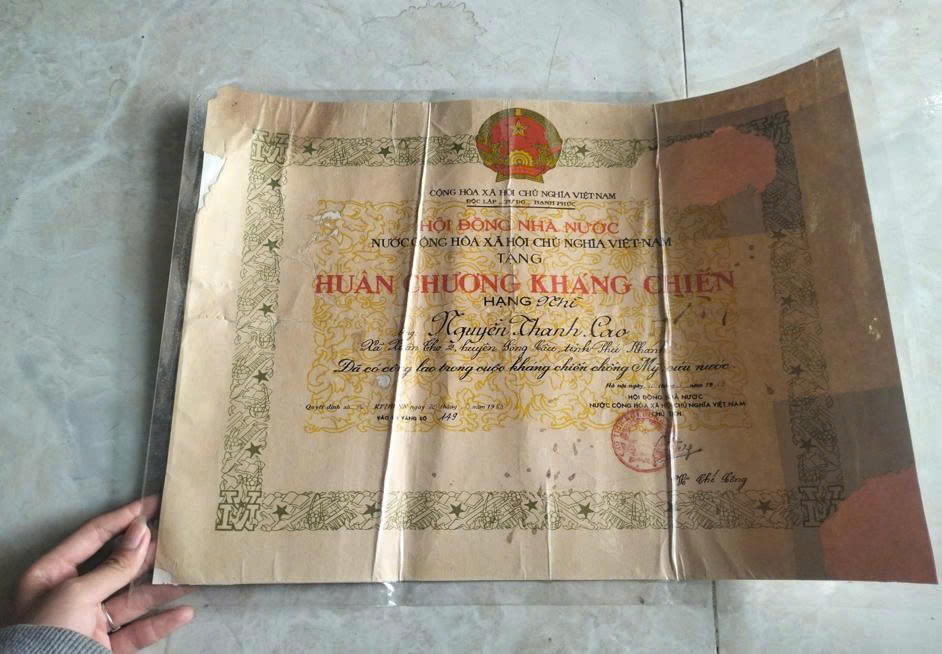 CỘNG HÒA XÃ HỘI CHỦ NGHĨA VIỆT-NAM
ĐỘC LẬP _ TỰ DO _ HẠNH PHÚC
HỘI ĐỒNG NHÀ NƯỚC
NƯỚC CỘNG HÒA XÃ HỘI CHỦ NGHĨA VIỆT-NAM
TẶNG
HUÂN CHƯƠNG KHÁNG CHIẾN
HẠNG Nhì
Nguyễn Thanh Cao
Xã Xuân Thọ 2, huyện Sông Cầu, tỉnh Phú Khánh
Đã có công lao trong cuộc kháng chiến chống Mỹ cứu nước
Hà nội, ngày tháng năm 19
HỘI ĐỒNG NHÀ NƯỚC
NƯỚC CỘNG HÒA XÃ HỘI CHỦ NGHĨA VIỆT NAM
CHỦ TỊCH
Quyết định số ngày tháng năm 19
VÀO SỔ VÀNG SỐ 449